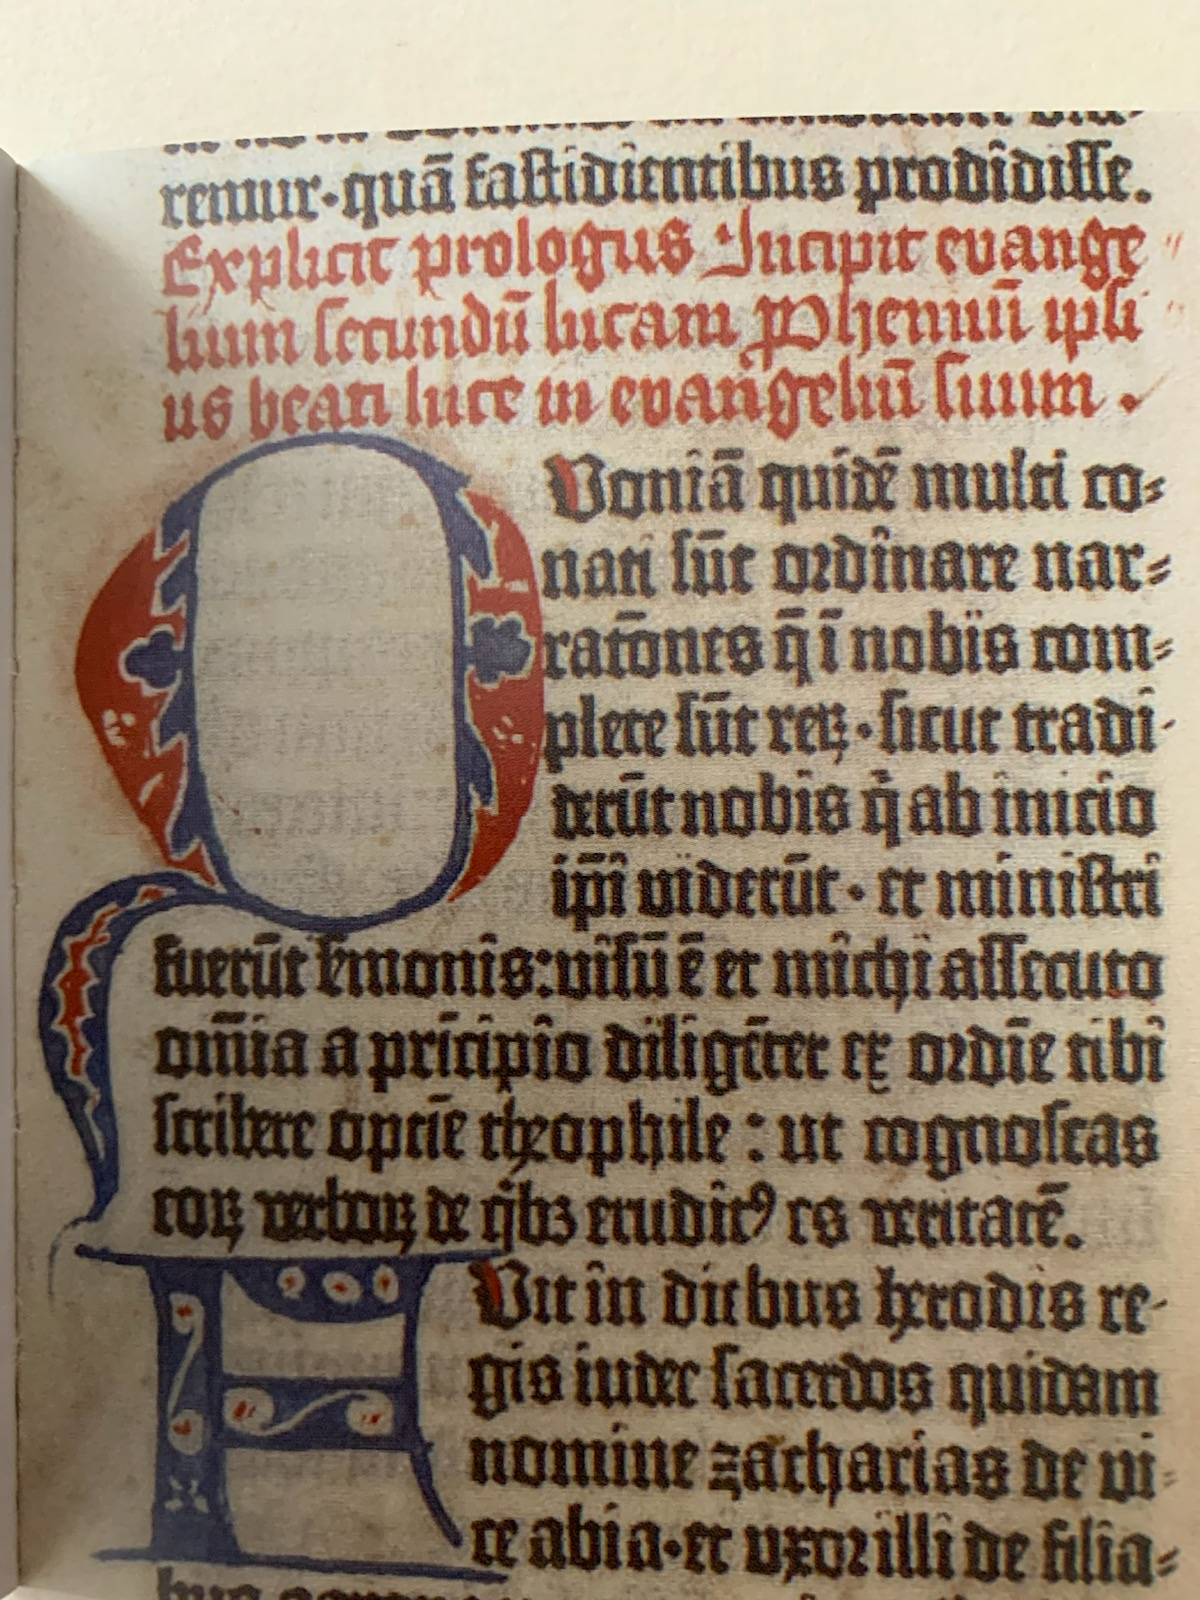 remur·quā fastidientibus prodidisse.
Explicit prologus Incipit evange
lium secundū lucam Prohemiū ipsi
us beati luce in evangeliū suum.
QVoniā quidē multi co⸗
nati sūt ordinare nar⸗
ratōnes q̄ ī nobis com⸗
plete sūt reꝝ·sicut tradi⸗
derūt nobis q̄ ab inicio
ip̄i viderūt·et ministri
fuerūt sermonis:visū ē et michi assecuto
om̄ia a prīcipio diligēter ex ordīe tibi
scribere optīe theophile:ut cognoscas
eoꝝ verboꝝ de qͥbꝫ eruditꝰ es veritatē.
FVit in diebus herodis re⸗
gis iudee sacerdos quidam
nomine zacharias de vi⸗
ce abia·et uxor illi de filia⸗